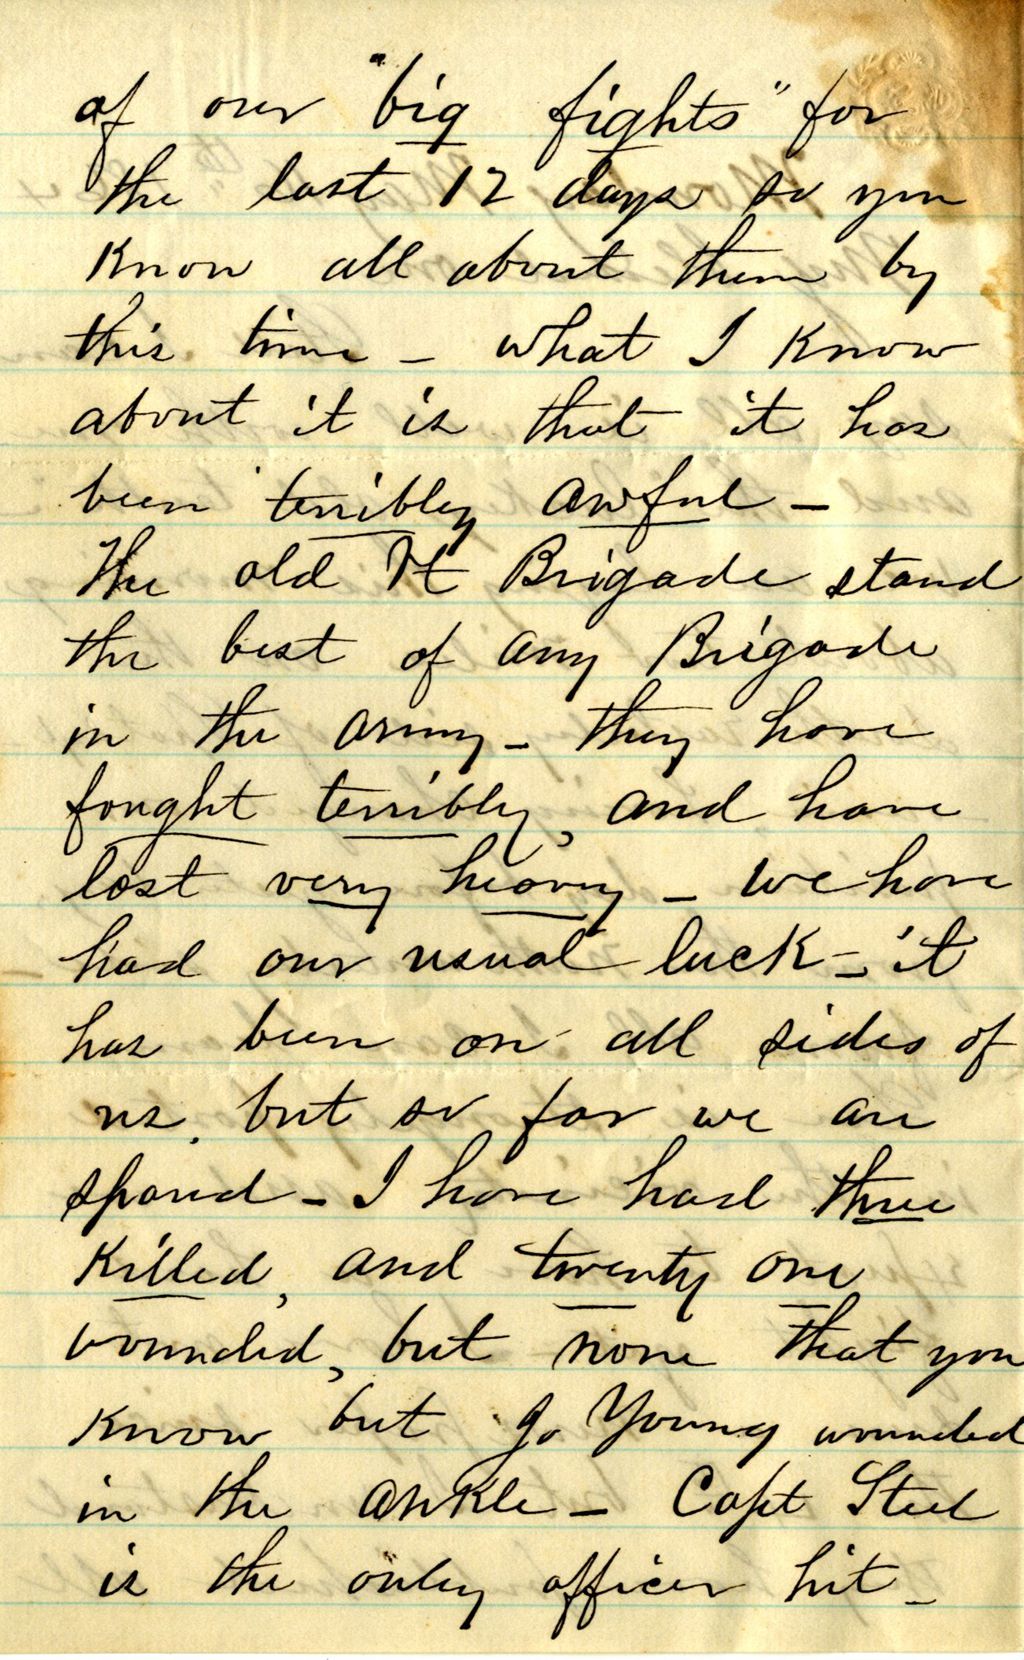 of our "big fights" for
the last 12 days so you
know all about them by
this time – what I know
about it is that it has
been terribly awful –
The old Vt Brigade stand
the best of any Brigade
in the army – they have
fought terribly, and have
lost very heavy – we have
had our usual luck – it
has been on all sides of
us. but so far we are
spared – I have had three
killed, and twenty one
wounded, but none that you
know but Jo Young wounded
in the ankle – Capt Steel
is the only officer hit –